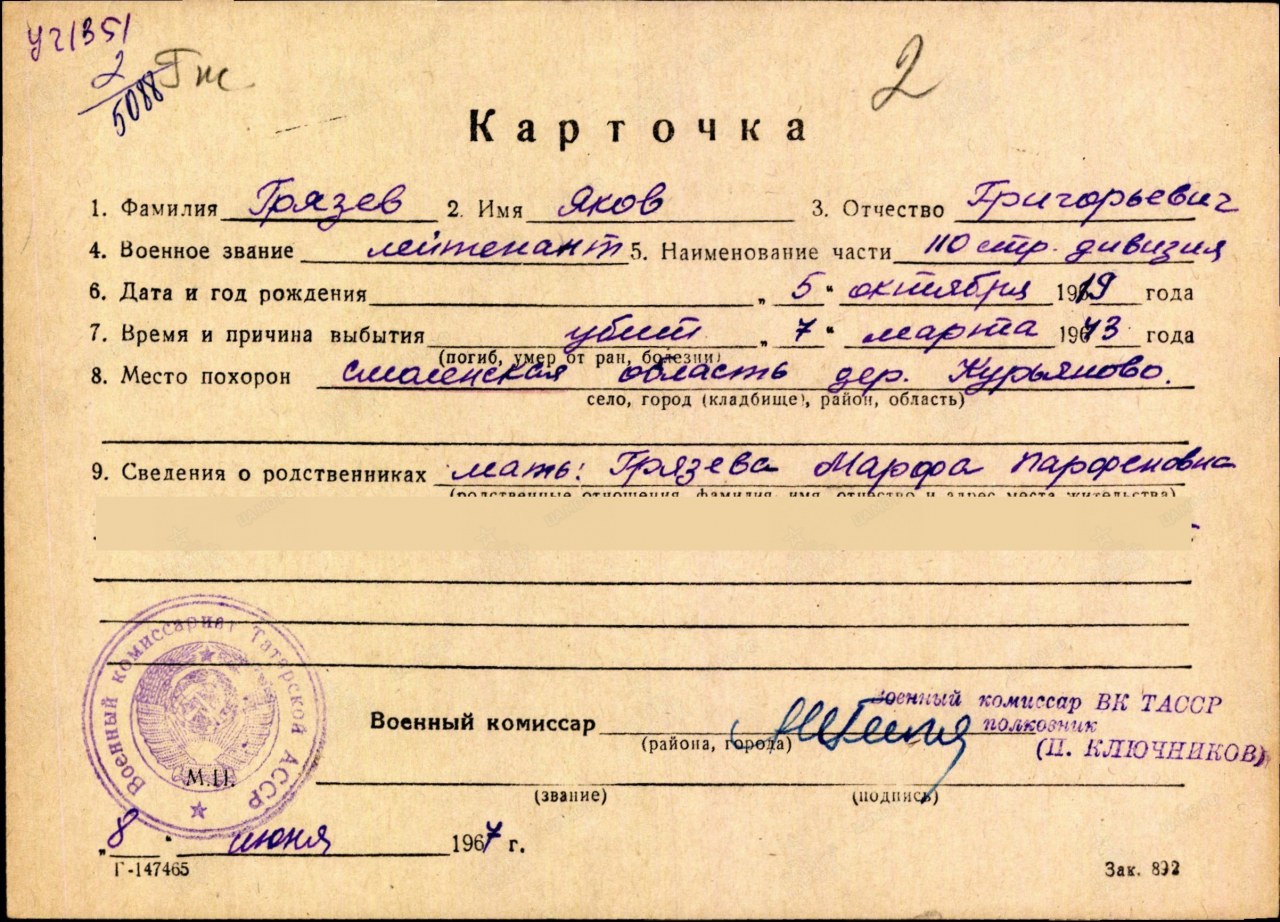 У21351
2
5088
2
Карточка
1. Фамилия Грязев 2. Имя Яков 3. Отчество Григорьевич
4. Военное звание лейтенант 5. Наименование части 110 стр. дивизия
6. Дата и год рождения „5“ октября 1919 года
7. Время и причина выбытия убит „7“ марта 1943 года
(погиб, умер от ран, болезни)
8. Место похорон Смоленская область дер. Курьяново.
село, город (кладбище), район, область)
9. Сведения о родственниках мать: Грязева Марфа Парфеновна
(родственные отношения, фамилия, имя, отчество и адрес места жительства)
Военный комиссариат Татарской АССР
М.П.
Военный комиссар военный комиссар ВК ТАССР
полковник
(района, города)
(П. КЛЮЧНИКОВ)
(звание) (подпись)
„8“ июня 1967 г.
Г-147465 Зак. 892